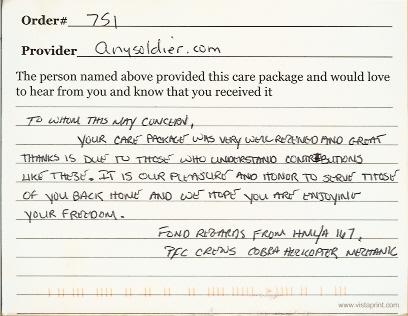 Order# 751
Provider anysoldier.com
The person named above provided this care package and would love
to hear from you and know that you received it
TO WHOM THIS MAY CONCERN,
YOUR CARE PACKAGE WAS VERY WELL RECEIVED AND GREAT
THANKS IS DUE TO THOSE WHO UNDERSTAND CONTRIBUTIONS
LIKE THESE. IT IS OUR PLEASURE AND HONOR TO SERVE THOSE
OF YOU BACK HOME AND WE HOPE YOU ARE ENJOYING
YOUR FREEDOM.
FOND REGARDS FROM HML/A 167,
PFC CREWS COBRA HELICOPTER MECHANIC
www.vistaprint.com